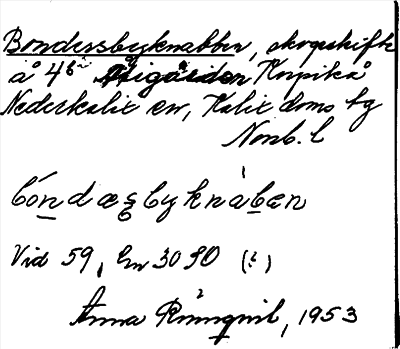 Bondersbyknabben, skogsskifte
å 4⁶⁻ Korpikå
Nederkalix sn, Kalix doms tg
Nonb. l
bóndæsbyknàbæn
Vid 59, En 3090 (?)
Anna Rönnqvist, 1953